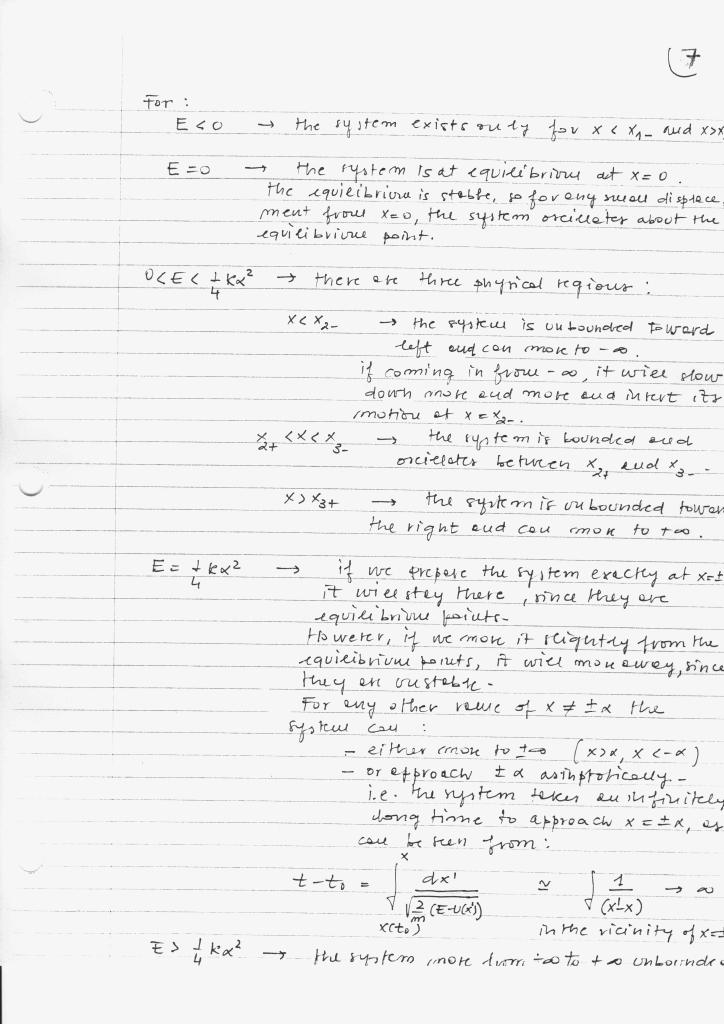 7
For :
E < 0 → the system exists only for x < x₁₋ and x > x
E = 0 → the system is at equilibrium at x = 0.
the equilibrium is stable, so for any small displace,
ment from x=0, the system oscillates about the
equilibrium point.
0 < E < 1/4 kα² → there are three physical regions :
x < x₂₋ → the system is unbounded toward
left and can move to -∞.
if coming in from -∞, it will slow
down more and more and invert its
motion at x = x₂₋.
x₂₊ < x < x₃₋ → the system is bounded and
oscillates between x₂₊ and x₃₋.
x > x₃₊ → the system is unbounded towar
the right and can move to +∞.
E = 1/4 kα² → if we prepare the system exactly at x=±
it will stay there, since they are
equilibrium points.
However, if we move it slightly from the
equilibrium points, it will move away, since
they are unstable.
For any other value of x ≠ ±α the
system can :
- either move to ±∞ (x>α, x<-α)
- or approach ±α asimptotically -
i.e. the system takes an infinitely
long time to approach x = ±α, as
can be seen from :
t-t₀ = ∫_{x(t₀)}^{x} dx' / √(2/m (E-U(x'))) ≃ ∫ 1/(x'-x) → ∞
in the vicinity of x=±
E > 1/4 kα² → the system move from -∞ to +∞ unbounde